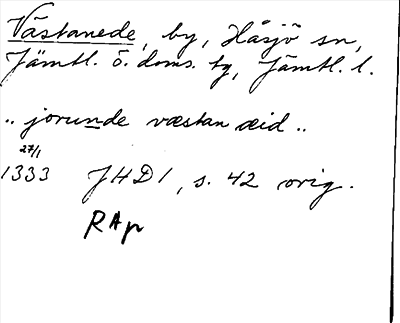 Västanede, by, Håsjö sn,
Jämtl. ö. doms. tg, Jämtl. l.
.. jorunde væstan æid ..
27/1
1333 JHD 1, s. 42 orig.
RAp